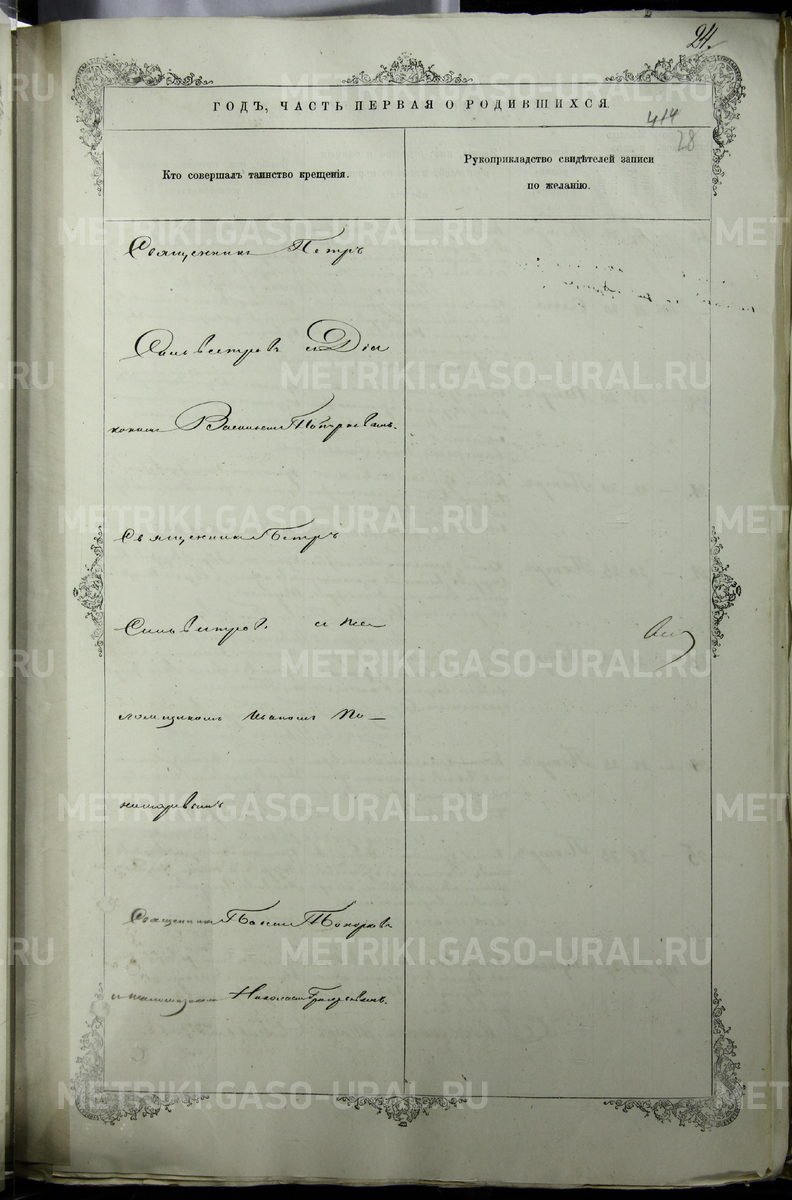 24.
ГОДЪ, ЧАСТЬ ПЕРВАЯ О РОДИВШИХСЯ.
414
28
Кто совершалъ таинство крещенія.
Рукоприкладство свидѣтелей записи
по желанію.
Священникъ Петръ
Сильвестровъ и Діа
кономъ Василіемъ
Священникъ Петръ
Сильвестровъ и Пса
ломщикомъ Иваномъ По-
номаревымъ
Священникъ
и псаломщикомъ Николаемъ
METRIKI.GASO-URAL.RU